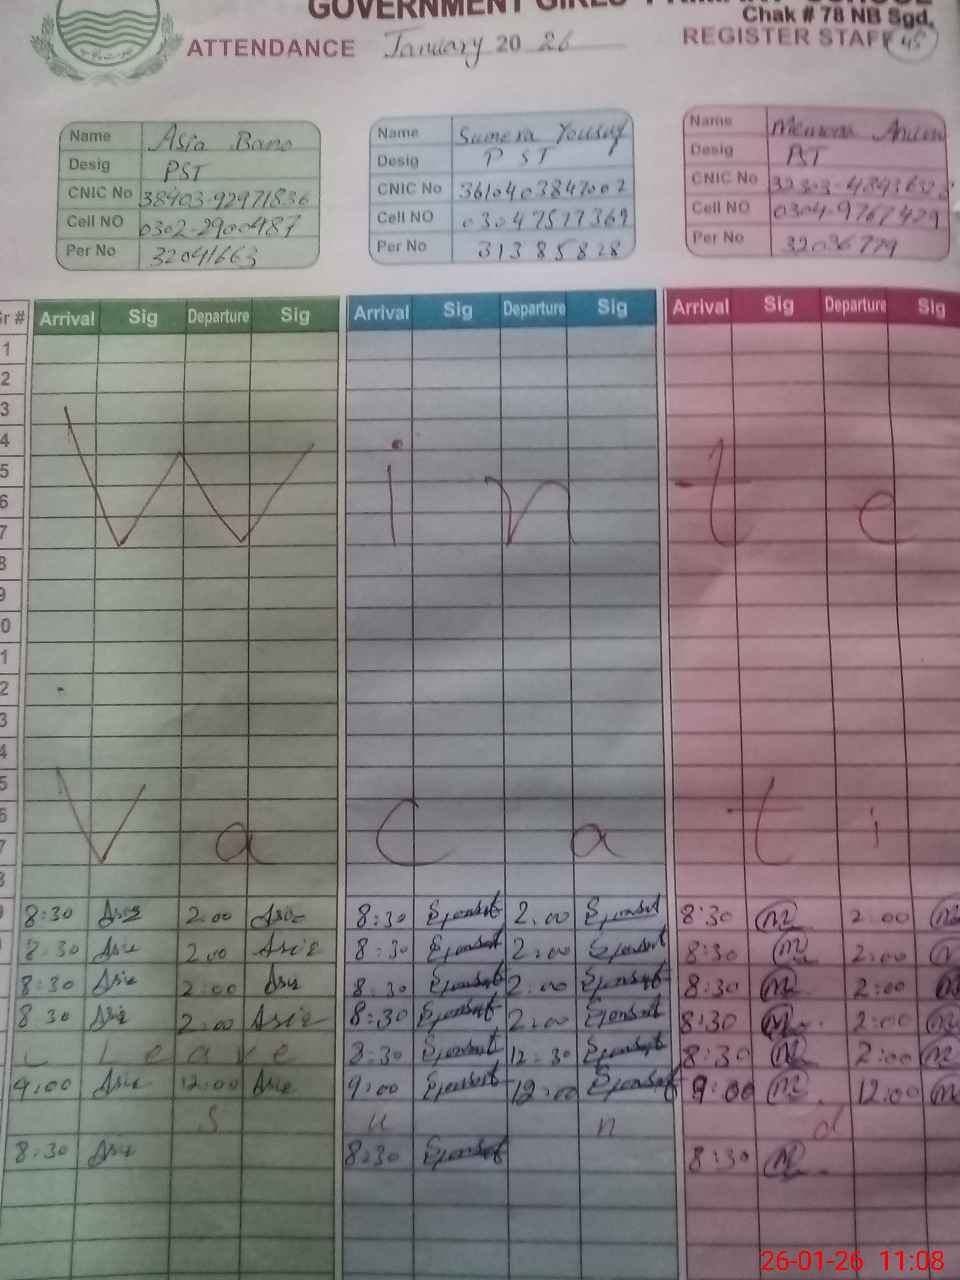 GOVERNMENT GIRLS PRIMARY SCHOOL
Chak # 78 NB Sgd.
ATTENDANCE January 20 26 REGISTER STAFF 45
Name Asia Bano
Desig PST
CNIC No 38403-92971836
Cell NO 0302-2900487
Per No 32041663
Name Sumera Yousuf
Desig PST
CNIC No 3610403847002
Cell NO 03047517369
Per No 31385828
Name Anum
Desig PST
CNIC No
Cell NO 0304-9767429
Per No 32036779
Sr # Arrival Sig Departure Sig Arrival Sig Departure Sig Arrival Sig Departure Sig
1
2
3
4
5
6
7
8
9
0
1
2
3
4
5
6
7
8
W i n t e
V a c a t i
8:30 Asia 2:00 Asia 8:30 2:00 8:30 2:00
8:30 Asia 2:00 Asia 8:30 2:00 8:30 2:00
8:30 Asia 2:00 Asia 8:30 2:00 8:30 2:00
8:30 Asia 2:00 Asia 8:30 2:00 8:30 2:00
Leave 8:30 12:30 8:30 2:00
9:00 Asia 12:00 Asia 9:00 12:00 9:00 12:00
S u n d
8:30 Asia 8:30 8:30
26-01-26 11:08